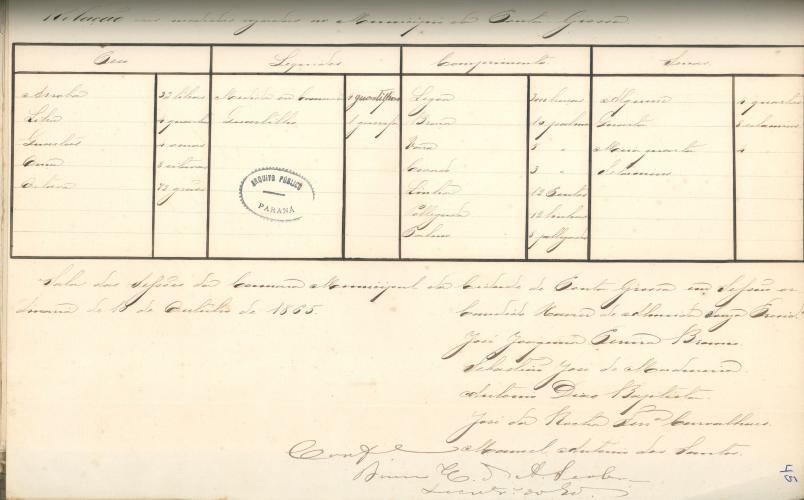 Relação das medidas usadas no Municipio de Ponta Grossa
Peso Liquidos Comprimento Seccos
Arroba 32 libras Medida ou Canada 4 quartilhos Legoa braças Alqueire 4 quartas
Libra 4 quartas Quartilho 1 garrafa Braça 10 palmos Quarta 8 selamins
Quartas 4 onças Vara 5 " Meia quarta 4 "
Onça 8 oitavas Covado 3 " Selamim
Oitava 72 grãos Linha 12 Pontos
Pollegada 12 linhas
Palmo 8 pollegadas
ARQUIVO PÚBLICO
PARANÁ
Sala das Sessões da Camara Municipal da Cidade de Ponta Grossa em Sessão or
dinaria de 18 de Outubro de 1865.
de Almeida Souza
José Joaquim Pereira Branco
Sebastião José de Madureira
Antonio Dias Baptista
José da Rocha Carvalhaes
Manoel Antonio dos Santos
Conf.e
45